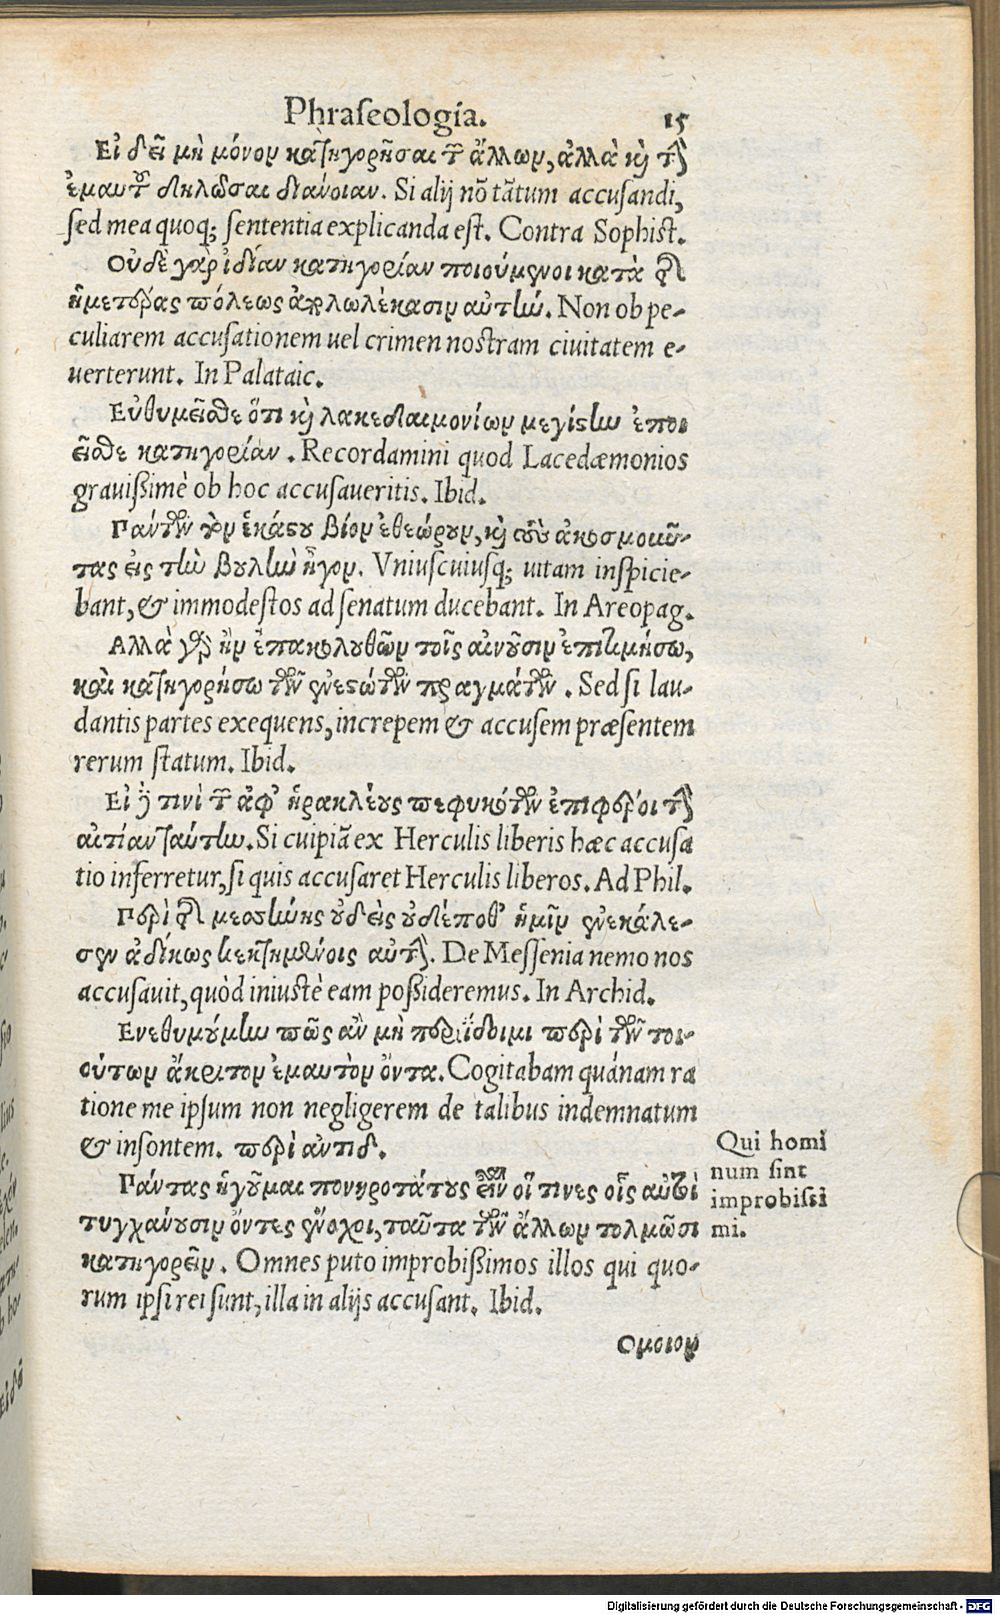 Phraſeologia. 15
Εἰ δεῖ μὴ μόνον κατηγορῆσαι τῶν ἄλλων, ἀλλὰ καὶ τὴν
ἐμαυτοῦ δηλῶσαι διάνοιαν. Si alij nõ tãtum accuſandi,
ſed mea quoq; ſententia explicanda eſt. Contra Sophiſt.
Οὐδὲ γὰρ ἰδίαν κατηγορίαν ποιούμενοι κατὰ τῆς
ἡμετέρας πόλεως ἀπολωλέκασιν αὐτὴν. Non ob pe-
culiarem accuſationem uel crimen noſtram ciuitatem e-
uerterunt. In Palataic.
Εὐθυμεῖσθε ὅτι καὶ λακεδαιμονίων μεγίστην ἐποι
εῖσθε κατηγορίαν. Recordamini quod Lacedæmonios
grauißimè ob hoc accuſaueritis. Ibid.
Πάντων τὸν ἑκάστου βίον ἐθεώρουν, καὶ τοὺς ἀκοσμοῦν-
τας εἰς τὴν βουλὴν ἦγον. Vniuſcuiuſq; uitam inſpicie-
bant, & immodeſtos ad ſenatum ducebant. In Areopag.
Αλλὰ γὰρ ἢν ἐπακολουθῶν τοῖς αἰνοῦσιν ἐπιτιμήσω,
καὶ κατηγορήσω τῶν ἐνεστώτων πραγμάτων. Sed ſi lau-
dantis partes exequens, increpem & accuſem præſentem
rerum ſtatum. Ibid.
Εἰ δέ τινὶ τῶν ἀφ' ἡρακλέους πεφυκότων ἐπιφέροι τὴν
αἰτίαν ταύτην. Si cuipiã ex Herculis liberis hæc accuſa
tio inferretur, ſi quis accuſaret Herculis liberos. Ad Phil.
Περὶ τῆς μεσσήνης οὐδεὶς οὐδέποθ' ἡμῖν ἐνεκάλε-
σεν ἀδίκως κεκτημένοις αὐτὴν. De Meſſenia nemo nos
accuſauit, quòd iniuſtè eam poßideremus. In Archid.
Ενεθυμούμην πῶς ἂν μὴ περιΐδοιμι περὶ τῶν τοι-
ούτων ἄκριτον ἐμαυτὸν ὄντα. Cogitabam quánam ra
tione me ipſum non negligerem de talibus indemnatum
& inſontem. περὶ ἀντιδ.
Πάντας ἡγοῦμαι πονηροτάτους εἶναι οἵ τινες οἷς αὐτοὶ
τυγχάνουσιν ὄντες ἔνοχοι, ταῦτα τῶν ἄλλων τολμῶσι
κατηγορεῖν. Omnes puto improbißimos illos qui quo-
rum ipſi rei ſunt, illa in alijs accuſant. Ibid.
Qui homi
num ſint
improbiſsi
mi.
Ομοιον
Digitalisierung gefördert durch die Deutsche Forschungsgemeinschaft - DFG